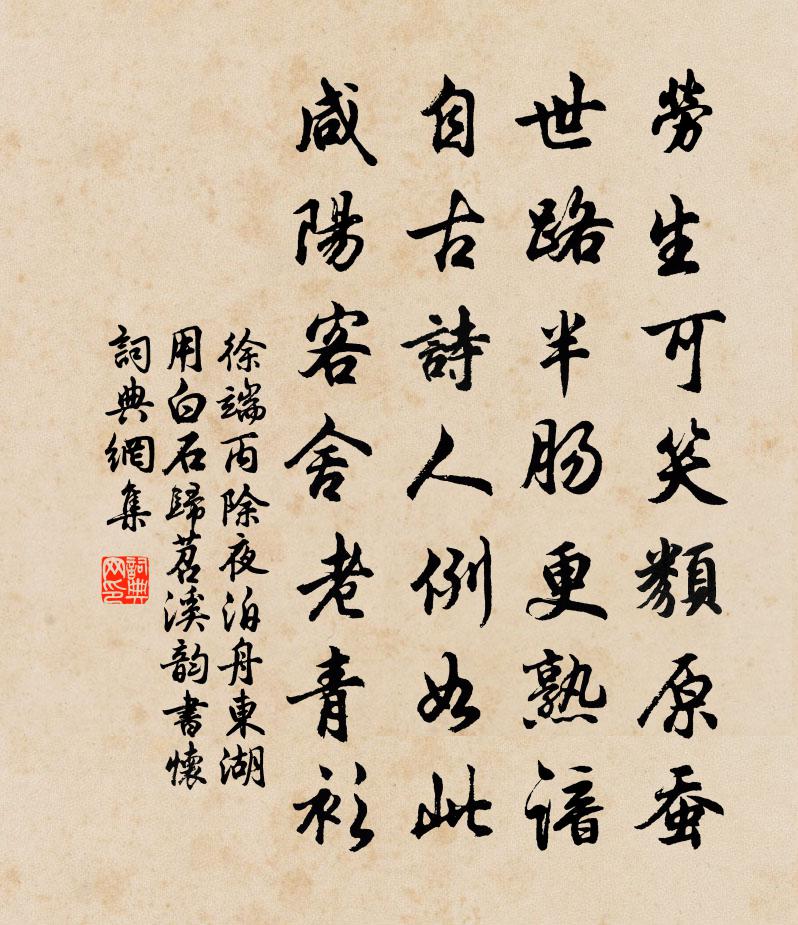 勞生可笑類原蚕
世路半肠更熟諳
自古詩人例如此
咸陽客舍老青衫
徐端丙除夜泊舟東湖
用白石歸苕溪韵書懷
詞典網集
詞典
网印